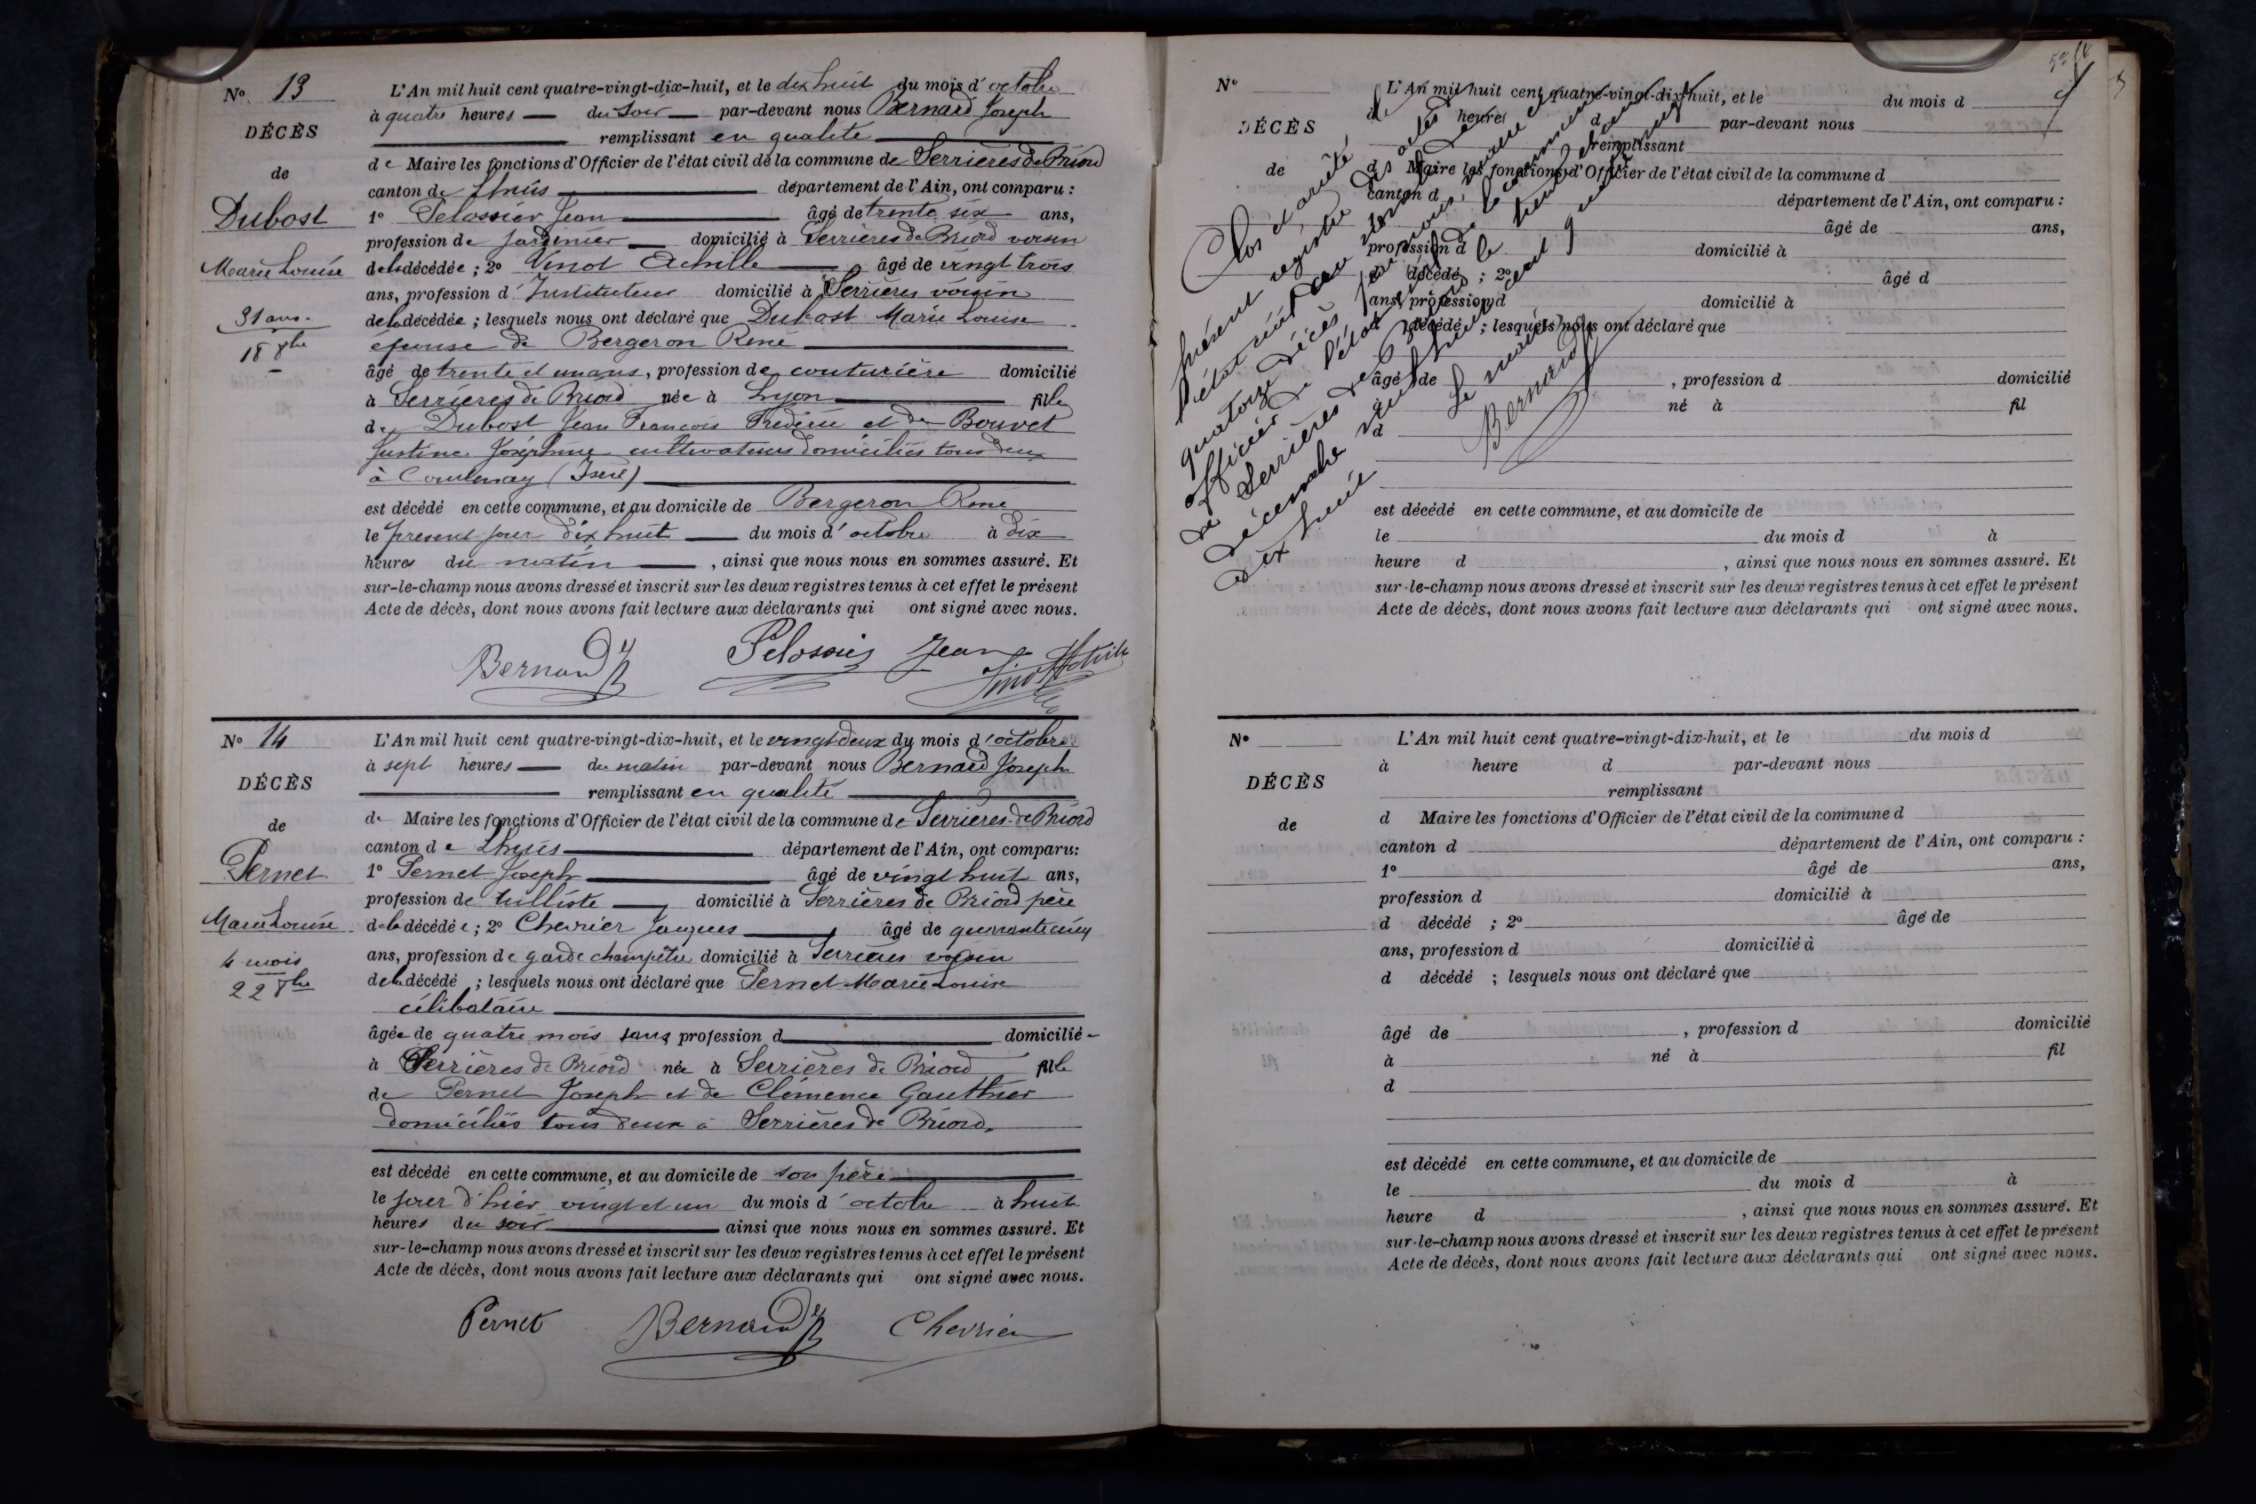 No 13
DÉCÈS
de
Dubost
Marie Louise
31 ans.
18 8bre
L'An mil huit cent quatre-vingt-dix-huit, et le dix huit du mois d'octobre
à quatre heures du soir par-devant nous Bernard Joseph
remplissant en qualité
de Maire les fonctions d'Officier de l'état civil de la commune de Serrières de Briord
canton de Lhuis département de l'Ain, ont comparu :
1o Pelossier Jean âgé de trente six ans,
profession de jardinier domicilié à Serrières de Briord voisin
de la décédée ; 2o Vinot Achille âgé de vingt trois
ans, profession d'Instituteur domicilié à Serrières voisin
de la décédée ; lesquels nous ont déclaré que Dubost Marie Louise
épouse de Bergeron René
âgé de trente et un ans, profession de couturière domicilié
à Serrières de Briord née à Lyon fille
de Dubost Jean François Frédéric et de Bouvet
Justine Joséphine cultivateurs domiciliés tous deux
à Courtenay (Isère)
est décédé en cette commune, et au domicile de Bergeron René
le présent jour dix huit du mois d'octobre à dix
heures du matin , ainsi que nous nous en sommes assuré. Et
sur-le-champ nous avons dressé et inscrit sur les deux registres tenus à cet effet le présent
Acte de décès, dont nous avons fait lecture aux déclarants qui ont signé avec nous.
Bernard Pelossier Jean Vinot Achille
No 14
DÉCÈS
de
Pernet
Marie Louise
4 mois
22 8bre
L'An mil huit cent quatre-vingt-dix-huit, et le vingt deux du mois d'octobre
à sept heures du matin par-devant nous Bernard Joseph
remplissant en qualité
de Maire les fonctions d'Officier de l'état civil de la commune de Serrières de Briord
canton de Lhuis département de l'Ain, ont comparu:
1o Pernet Joseph âgé de vingt huit ans,
profession de tulliste domicilié à Serrières de Briord père
de la décédée ; 2o Chevrier Jacques âgé de quarante cinq
ans, profession de garde champêtre domicilié à Serrières voisin
de la décédé ; lesquels nous ont déclaré que Pernet Marie Louise
célibataire
âgée de quatre mois sans profession d domicilié
à Serrières de Briord née à Serrières de Briord fille
de Pernet Joseph et de Clémence Gauthier
domiciliés tous deux à Serrières de Briord.
est décédé en cette commune, et au domicile de son père
le jour d'hier vingt et un du mois d'octobre à huit
heures du soir ainsi que nous nous en sommes assuré. Et
sur-le-champ nous avons dressé et inscrit sur les deux registres tenus à cet effet le présent
Acte de décès, dont nous avons fait lecture aux déclarants qui ont signé avec nous.
Pernet Bernard Chevrier
No
DÉCÈS
de
L'An mil huit cent quatre-vingt-dix-huit, et le du mois d
à heures d par-devant nous
remplissant
d Maire les fonctions d'Officier de l'état civil de la commune d
canton d département de l'Ain, ont comparu :
âgé de ans,
profession d domicilié à
d décédé ; 2o âgé d
ans, profession d domicilié à
d décédé ; lesquels nous ont déclaré que
âgé de , profession d domicilié
né à fil
d
est décédé en cette commune, et au domicile de
le du mois d à
heure d , ainsi que nous nous en sommes assuré. Et
sur-le-champ nous avons dressé et inscrit sur les deux registres tenus à cet effet le présent
Acte de décès, dont nous avons fait lecture aux déclarants qui ont signé avec nous.
Clos et arrêté le
présent registre des actes de
l'état civil
quatorze décès par nous, maire et
officier de l'état civil de la commune
de Serrières de Briord le trente et un
décembre mil huit cent quatre vingt
dix huit
Le maire
Bernard
No
DÉCÈS
de
L'An mil huit cent quatre-vingt-dix-huit, et le du mois d
à heure d par-devant nous
remplissant
d Maire les fonctions d'Officier de l'état civil de la commune d
canton d département de l'Ain, ont comparu :
1o âgé de ans,
profession d domicilié à
d décédé ; 2o âgé de
ans, profession d domicilié à
d décédé ; lesquels nous ont déclaré que
âgé de , profession d domicilié
à né à fil
d
est décédé en cette commune, et au domicile de
le du mois d à
heure d , ainsi que nous nous en sommes assuré. Et
sur-le-champ nous avons dressé et inscrit sur les deux registres tenus à cet effet le présent
Acte de décès, dont nous avons fait lecture aux déclarants qui ont signé avec nous.